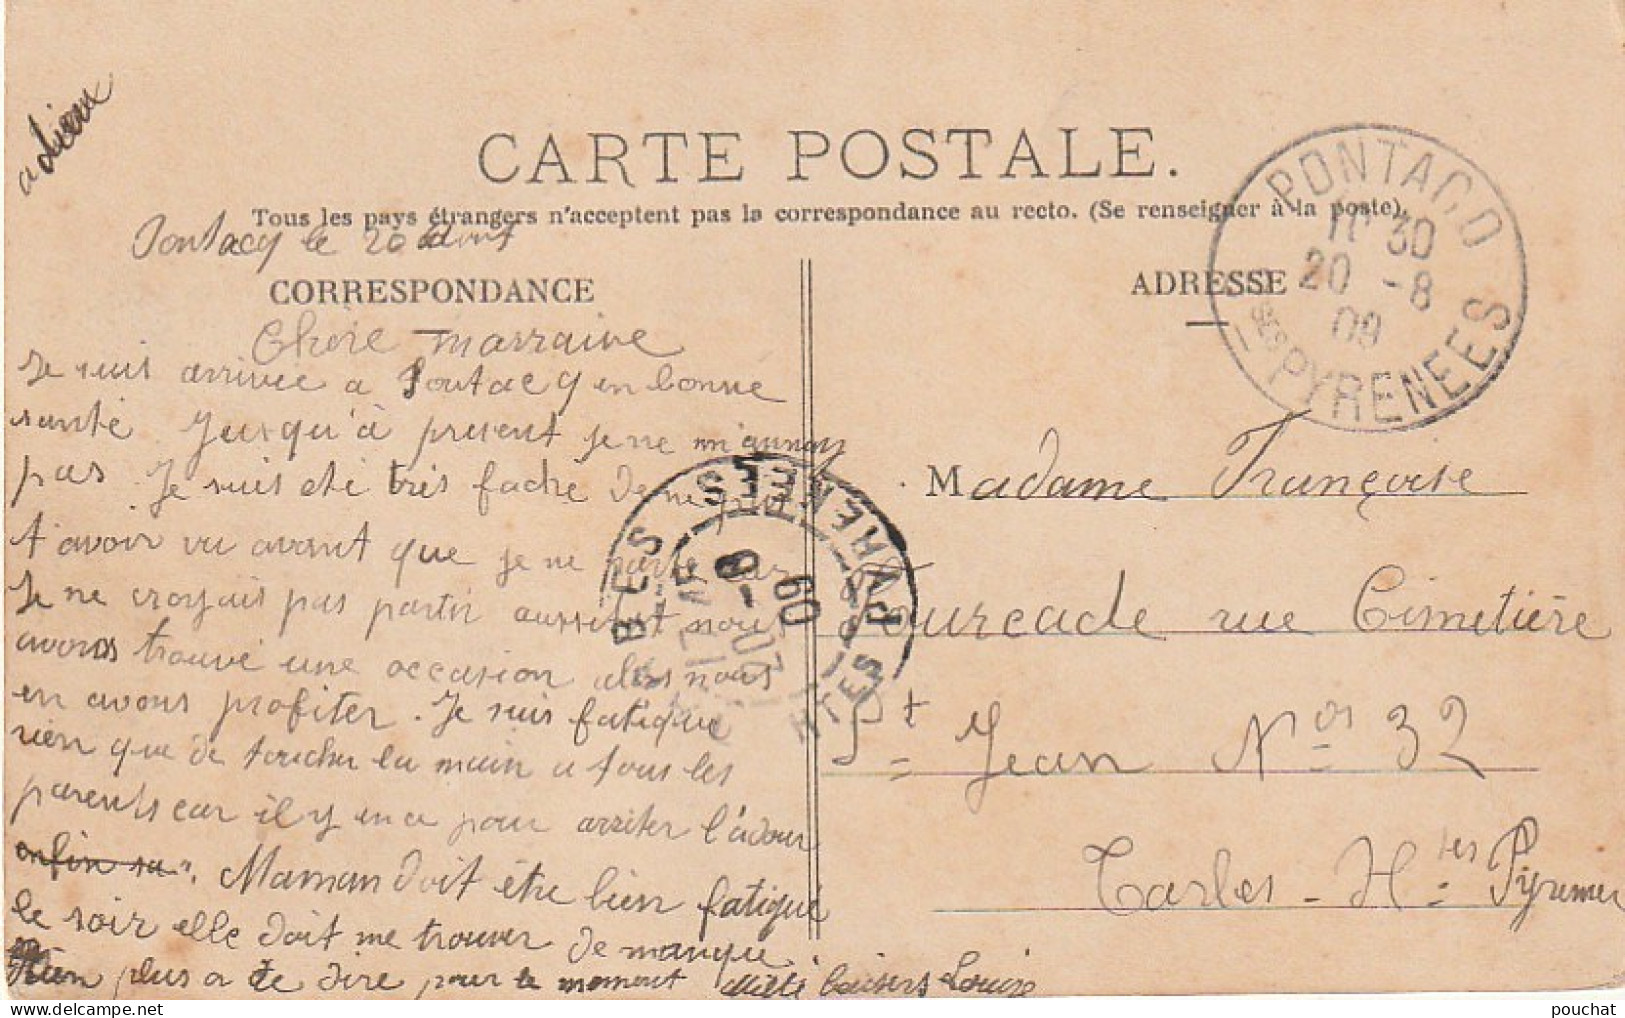 adieux
CARTE POSTALE.
Tous les pays étrangers n'acceptent pas la correspondance au recto. (Se renseigner à la poste).
Pontacq le 20 Aout
CORRESPONDANCE
Chère marraine
Je suis arrivee a Pontacq en bonne
santé Jusqu'à present je ne m'annuy
pas. Je suis été très faché de ne
t'avoir vu avant que je ne parte car
Je ne croyais pas partir aussitot nous
avons trouvé une occasion alors nous
en avons profiter. Je suis fatiguée
rien que de toucher la main a tous les
parents car il y en a pour arriter l'adour
enfin sa. Maman doit être bien fatigué
le soir elle doit me trouver de manque.
Rien plus a te dire pour le moment Mille baisers Louise
ADRESSE
PONTACQ
11 30
20 -8
09
BSES PYRENEES
Madame Françoise
Fourcade rue Cimetière
St Jean Nos 32
Tarbes - Htes Pyrenées
TARBES
17 15
20 -8
09
HTES PYRENEES
pouchat